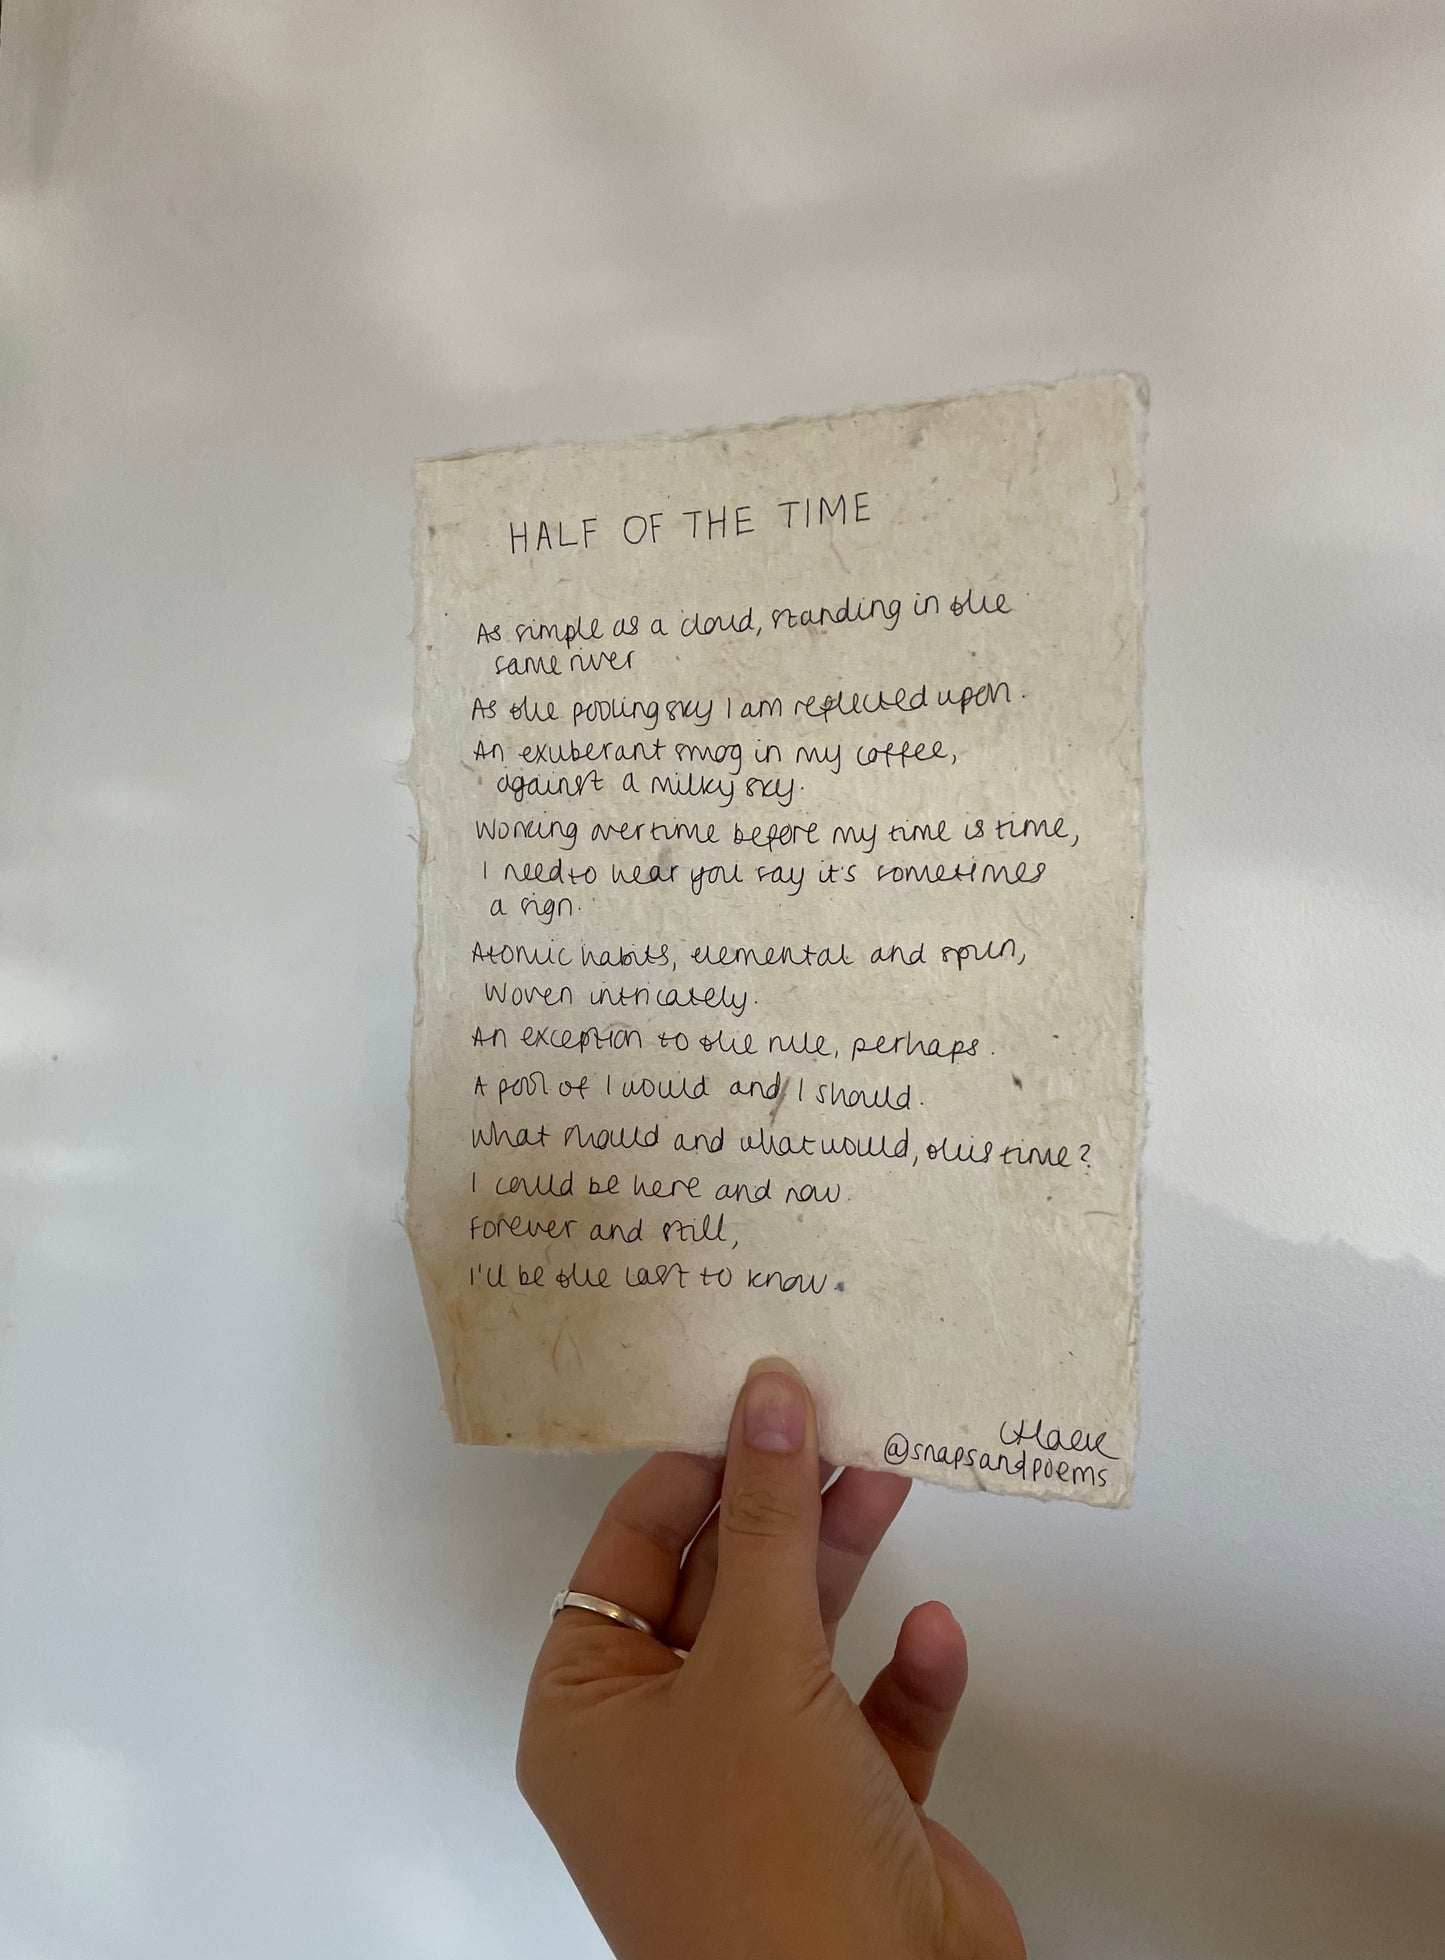 HALF OF THE TIME
As simple as a cloud, standing in the
same river
As the pooling sky I am reflected upon.
An exuberant smog in my coffee,
against a milky sky.
Working overtime before my time is time,
I need to hear you say it's sometimes
a sign.
Atomic habits, elemental and spun,
Woven intricately.
An exception to the rule, perhaps.
A pool of I would and I should.
What should and what would, this time?
I could be here and now.
Forever and still,
I'll be the last to know.
@snapsandpoems